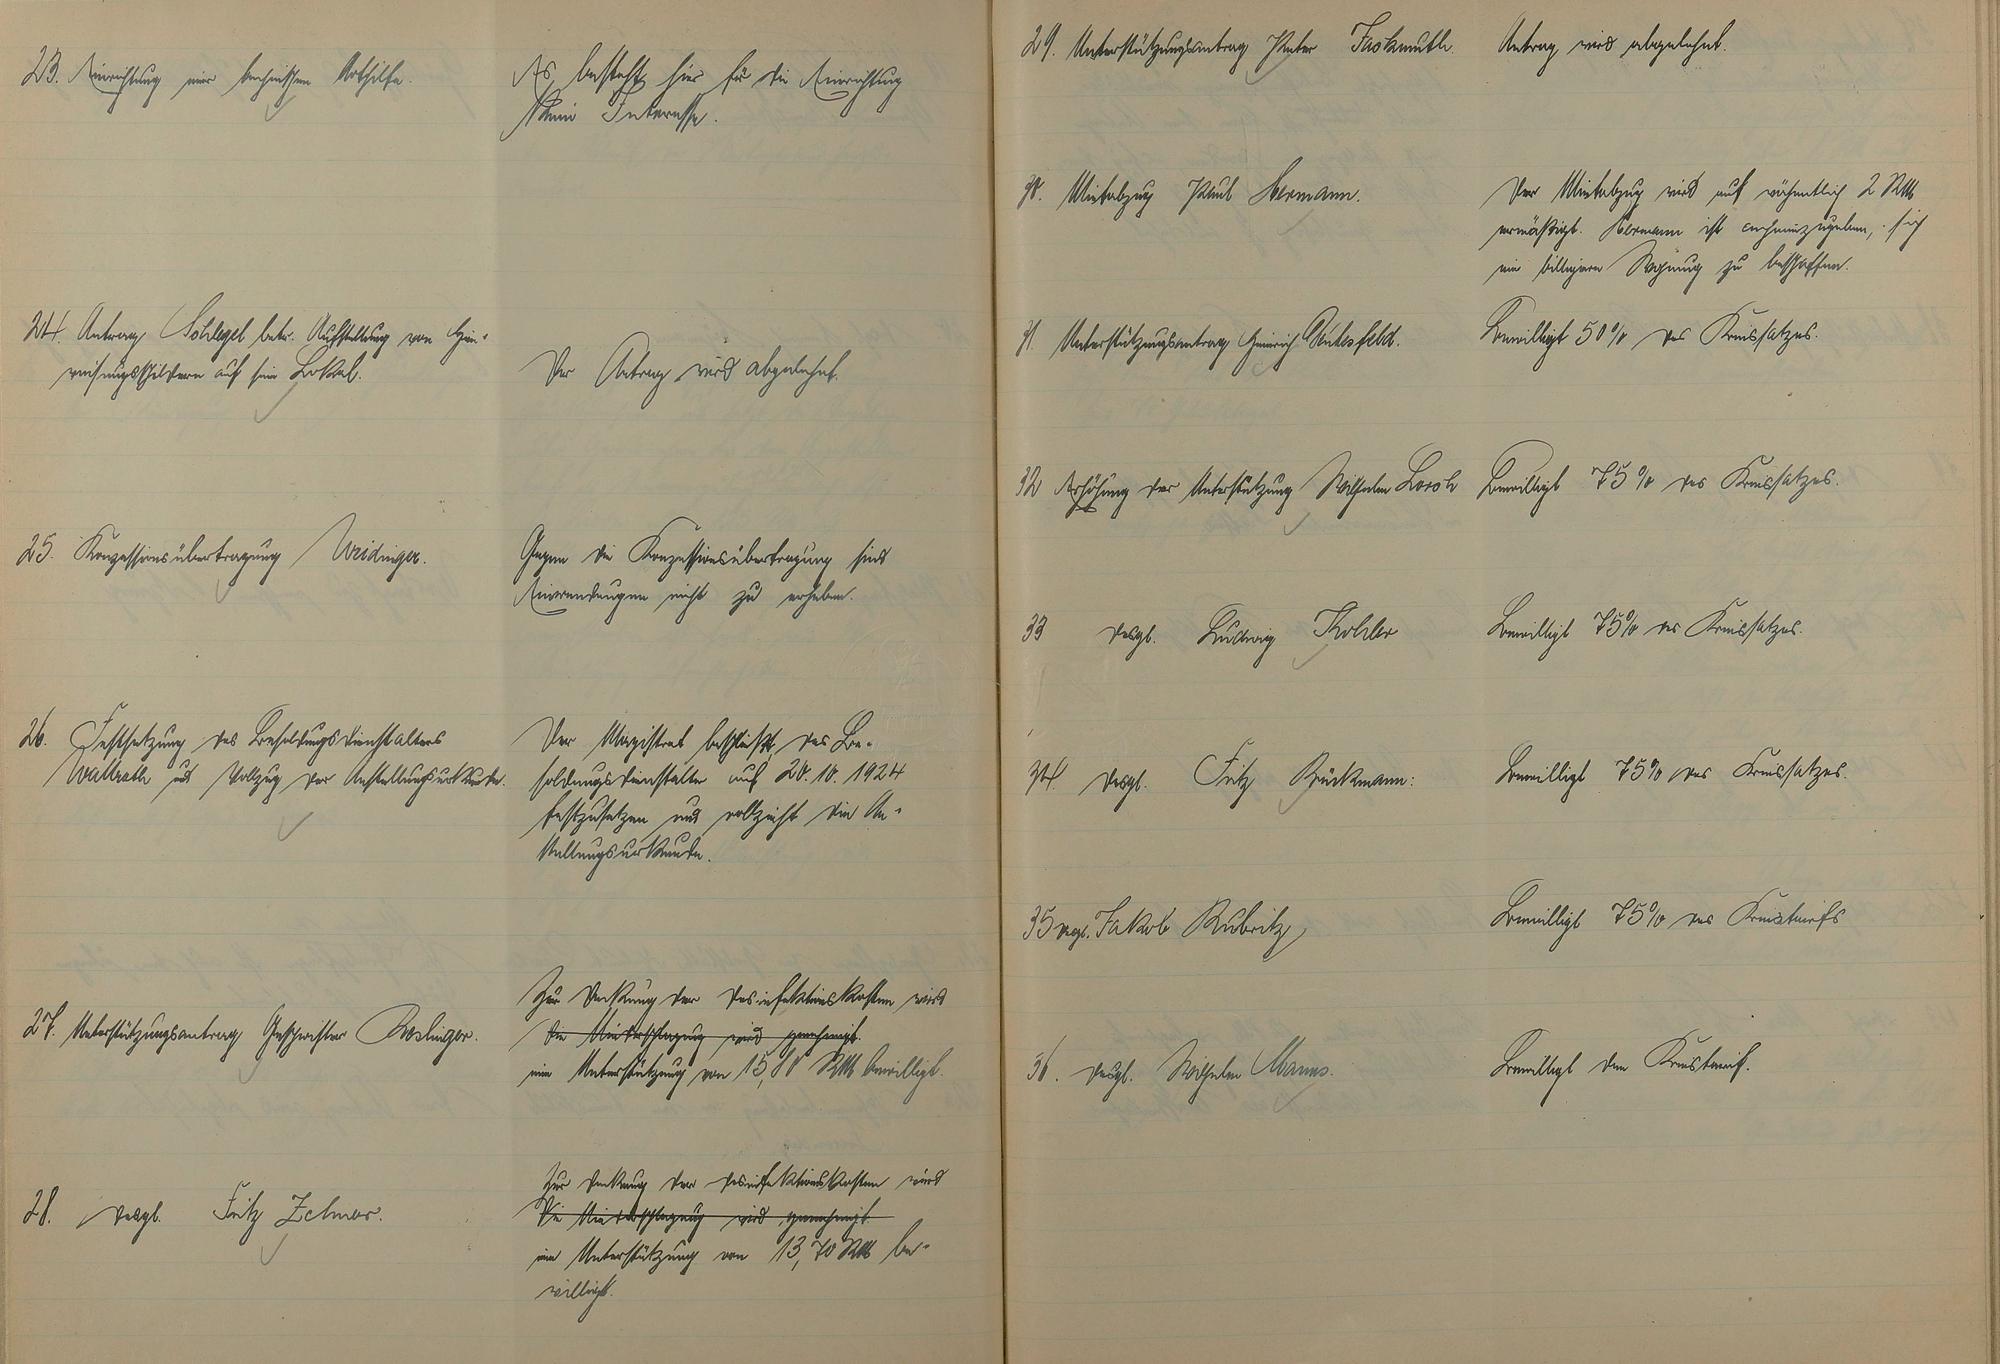 23. Einrichtung einer technischen Nothilfe.
Es besteht hier für die Einrichtung
kein Interesse.
24. Antrag Schlegel betr. Aufstellung von Hin-
weisungsschildern auf sein Lokal.
Der Antrag wird abgelehnt.
25. Konzessionsübertragung Weidinger.
Gegen die Konzessionsübertragung sind
Einwendungen nicht zu erheben.
26. Festsetzung des Besoldungsdienstalters
Wallrath und Vollzug der Anstellungsurkunde.
Der Magistrat beschließt, das Be-
soldungsdienstalter auf 20.10.1924
festzusetzen und vollzieht die An-
stellungsurkunde.
27. Unterstützungsantrag Geschwister
Zur Deckung der Desinfektionskosten wird
die Niederschlagung wird genehmigt.
eine Unterstützung von 15,80 RM bewilligt.
28. desgl. Fritz Zelmer.
Zur Deckung der Desinfektionskosten wird
Die Niederschlagung wird genehmigt.
eine Unterstützung von 13,70 RM be-
willigt.
29. Unterstützungsantrag Peter
Antrag wird abgelehnt.
30. Mietabzug Paul Hermann.
Der Mietabzug wird auf wöchentlich 2 RM
ermäßigt. Hermann ist anheimzugeben, sich
eine billigere Wohnung zu beschaffen.
31. Unterstützungsantrag Heinrich
Bewilligt 50% des Kreissatzes.
32 Erhöhung der Unterstützung Wilhelm Lorch
Bewilligt 75% des Kreissatzes.
33 desgl. Ludwig Kohler
Bewilligt 75% des Kreissatzes.
34. desgl. Fritz Brückmann:
Bewilligt 75% des Kreissatzes.
35 desgl. Jakob Rubritz
Bewilligt 75% des Kreistarifs
36. desgl. Wilhelm Manns.
Bewilligt den Kreistarif.